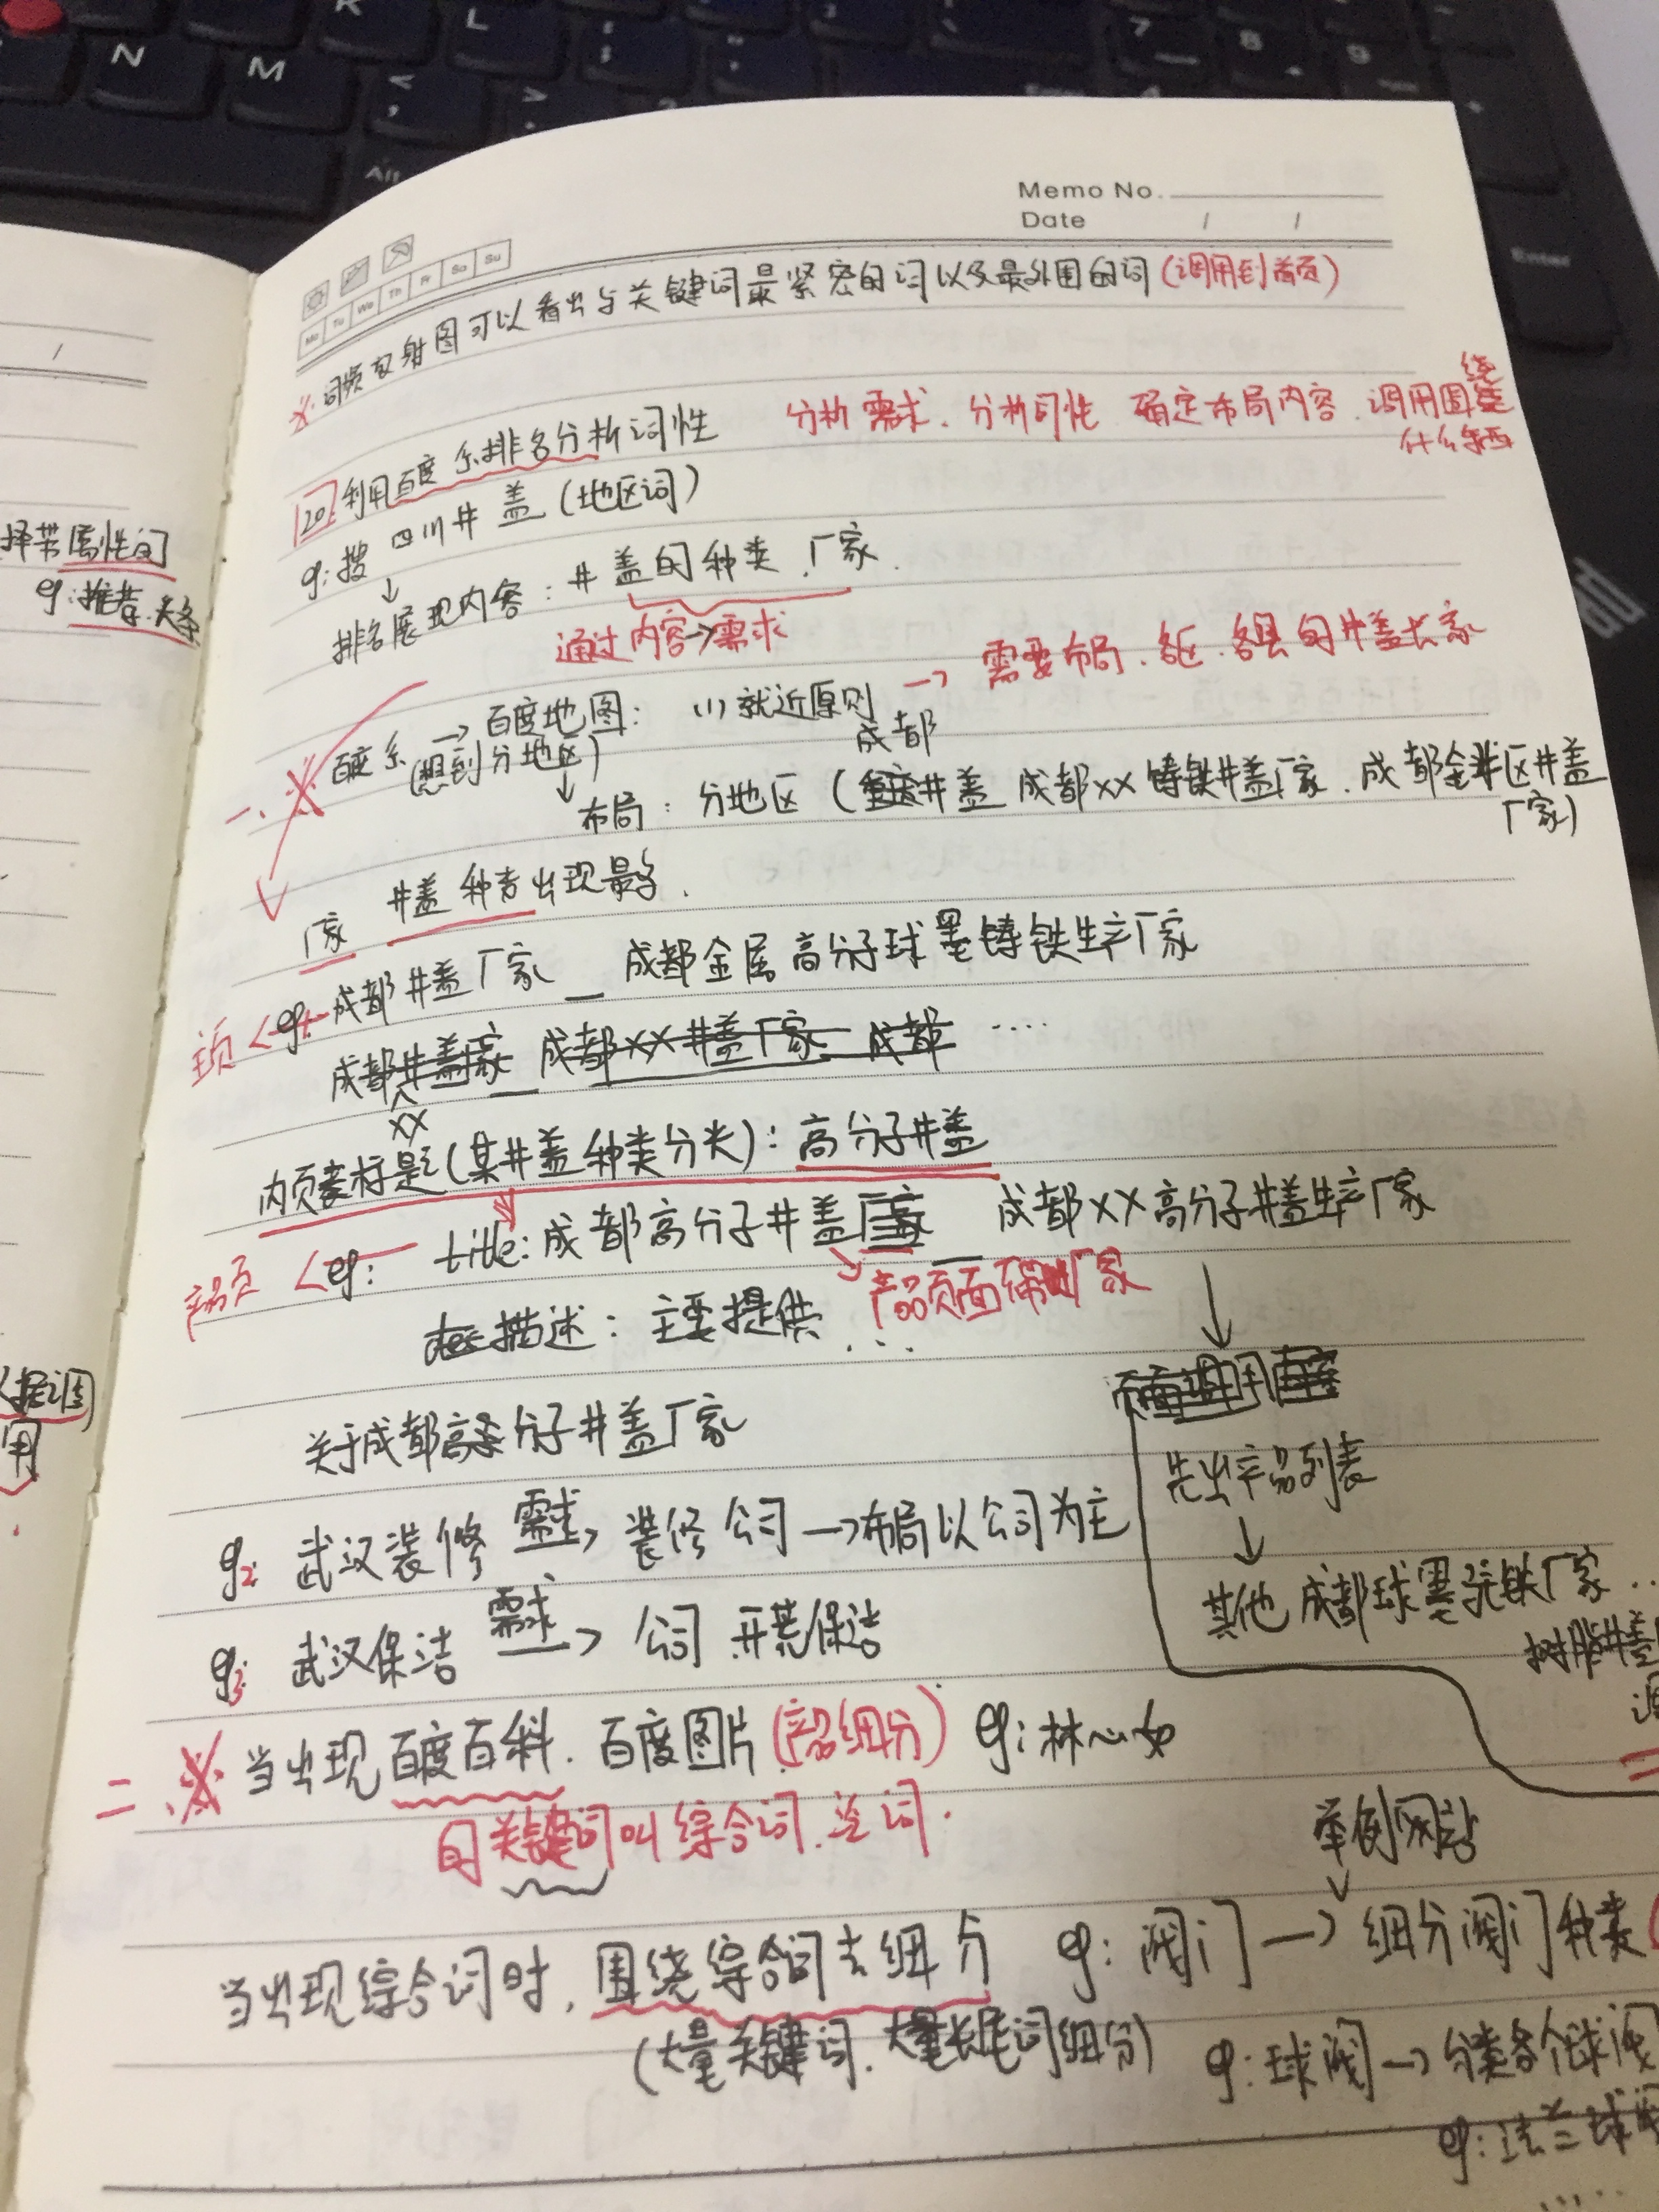 N M K L
Alt
Enter
7 8 9
4
Memo No.
Date / /
Mo Tu We Th Fr Sa Su
词频 射图可以看出与关键词最紧密的词以及最外围的词(调用到首页)
分析需求、分析词性 确定布局内容、调用围绕什么东西
20 利用百度系排名分析词性
eg:搜 四川井盖(地区词)
↓
排名展现内容:井盖的种类、厂家.
通过内容→需求
百度系→百度地图: (1)就近原则 → 需要布局、各区、各县的井盖厂家
(想到分地区) 成都
一、※
↓
布局:分地区(井盖 成都××铸铁井盖厂家、成都金牛区井盖厂家)
厂家 井盖种类出现最多.
主页 < eg: 成都井盖厂家_成都金属高分子球墨铸铁生产厂家
成都井盖厂家_成都××井盖厂家_成都····
××
内页标题(某井盖种类分类):高分子井盖
产品页 < eg: title:成都高分子井盖厂家_成都××高分子井盖生产厂家
产品页面 厂家
描述:主要提供···
↓
关于成都高分子井盖厂家
先出产品列表
↓
其他 成都球墨铸铁厂家..
树脂井盖
eg2: 武汉装修 需求→ 装修公司→布局以公司为主
eg3: 武汉保洁 需求→ 公司 开荒保洁
二、※ 当出现百度百科、百度图片(产品细分) eg:林心如
的关键词叫综合词、总词.
举例网站
↓
当出现综合词时,围绕综合词去细分 eg:阀门→细分阀门种类
(大量关键词、大量长尾词细分) eg:球阀→分类各个球阀
eg:法兰球阀
.....
择带属性词
eg:推荐、头条
调
用